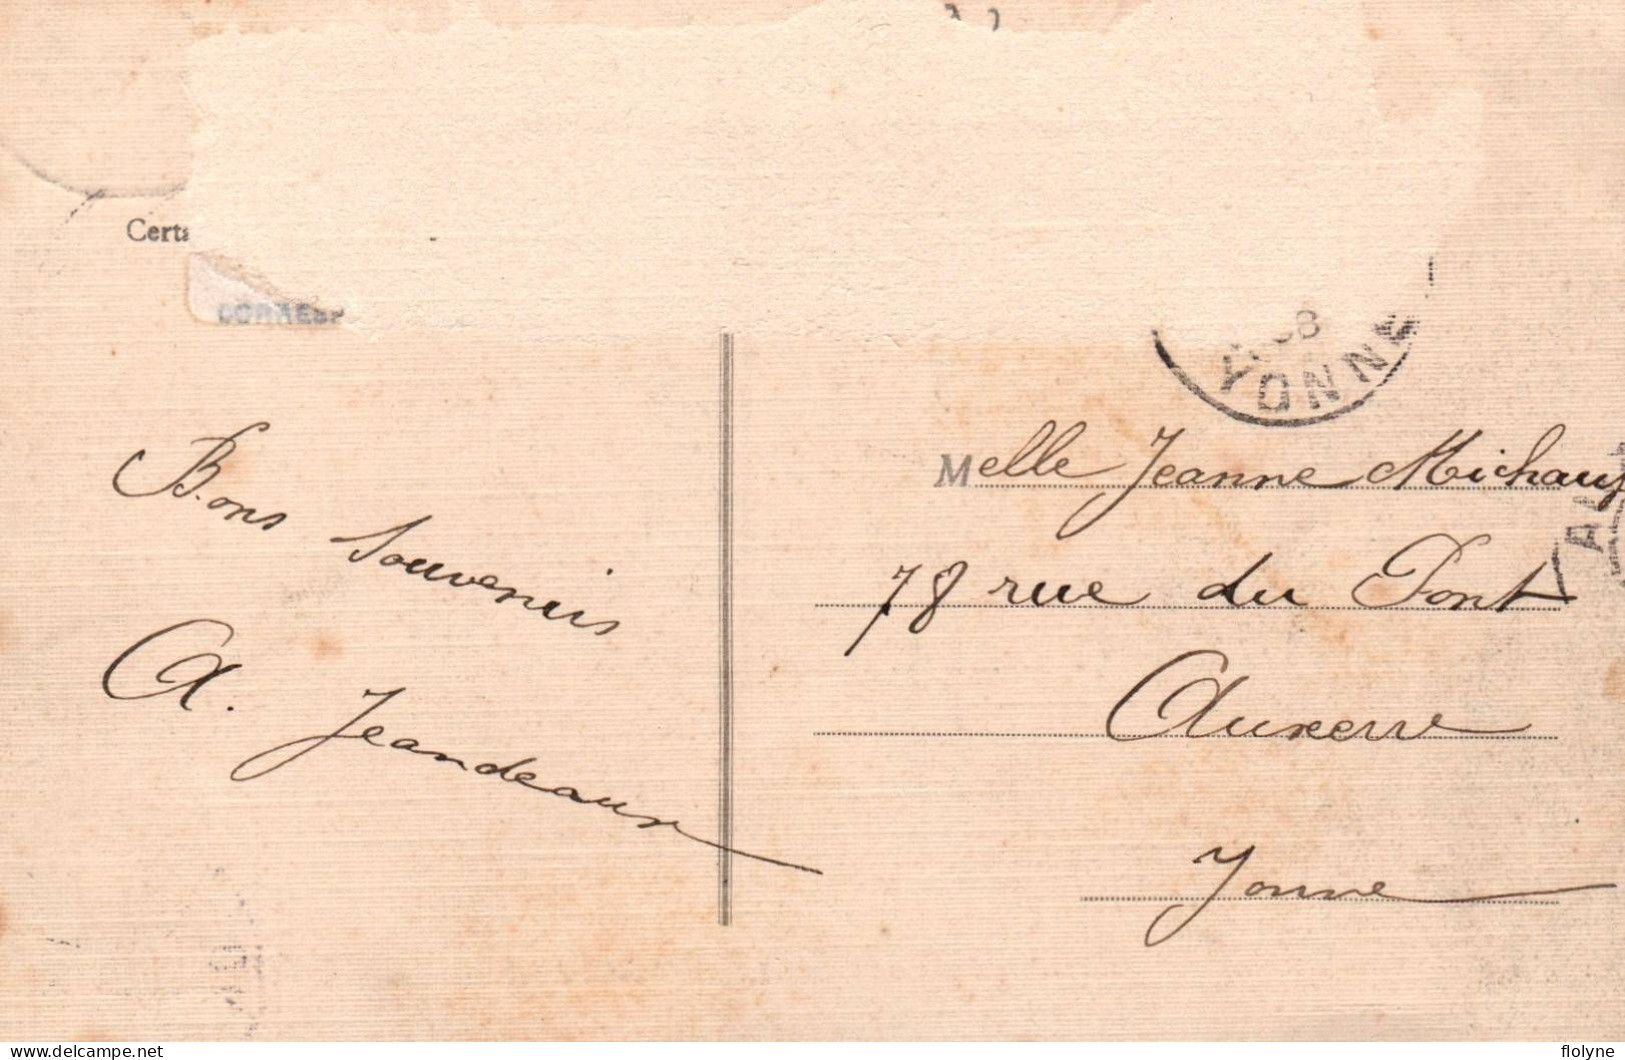 Certa
CORRESP
08
YONNE
Bons souvenirs
A. Jeandeaux
Melle Jeanne Michaux
78 rue du Pont
Auxerre
Yonne
delcampe.net
flolyne